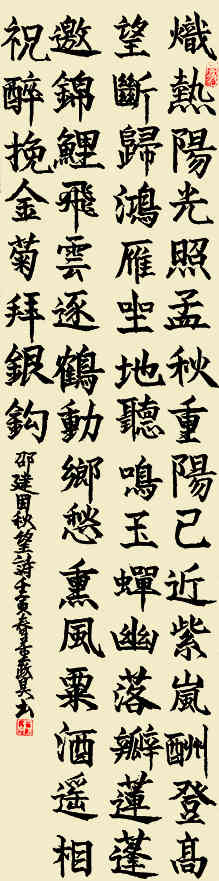 熾熱陽光照孟秋重陽已近紫嵐酬登高
望斷歸鴻雁坐地聽鳴玉蟬幽落瓣蓮蓬
邀錦鯉飛雲逐鶴動鄉愁熏風粟酒遥相
祝醉挽金菊拜銀鈎
邵建秋望詩壬寅春